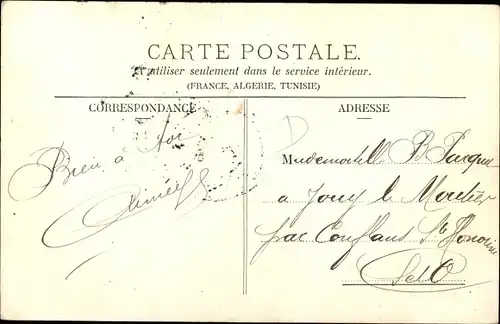 CARTE POSTALE.
A utiliser seulement dans le service intérieur.
(FRANCE, ALGERIE, TUNISIE)
CORRESPONDANCE
Bien à toi
Aimée
ADRESSE
Mademoiselle B. Jacques
a Jouy le Moutier
par Conflans Ste Honorine
S et O